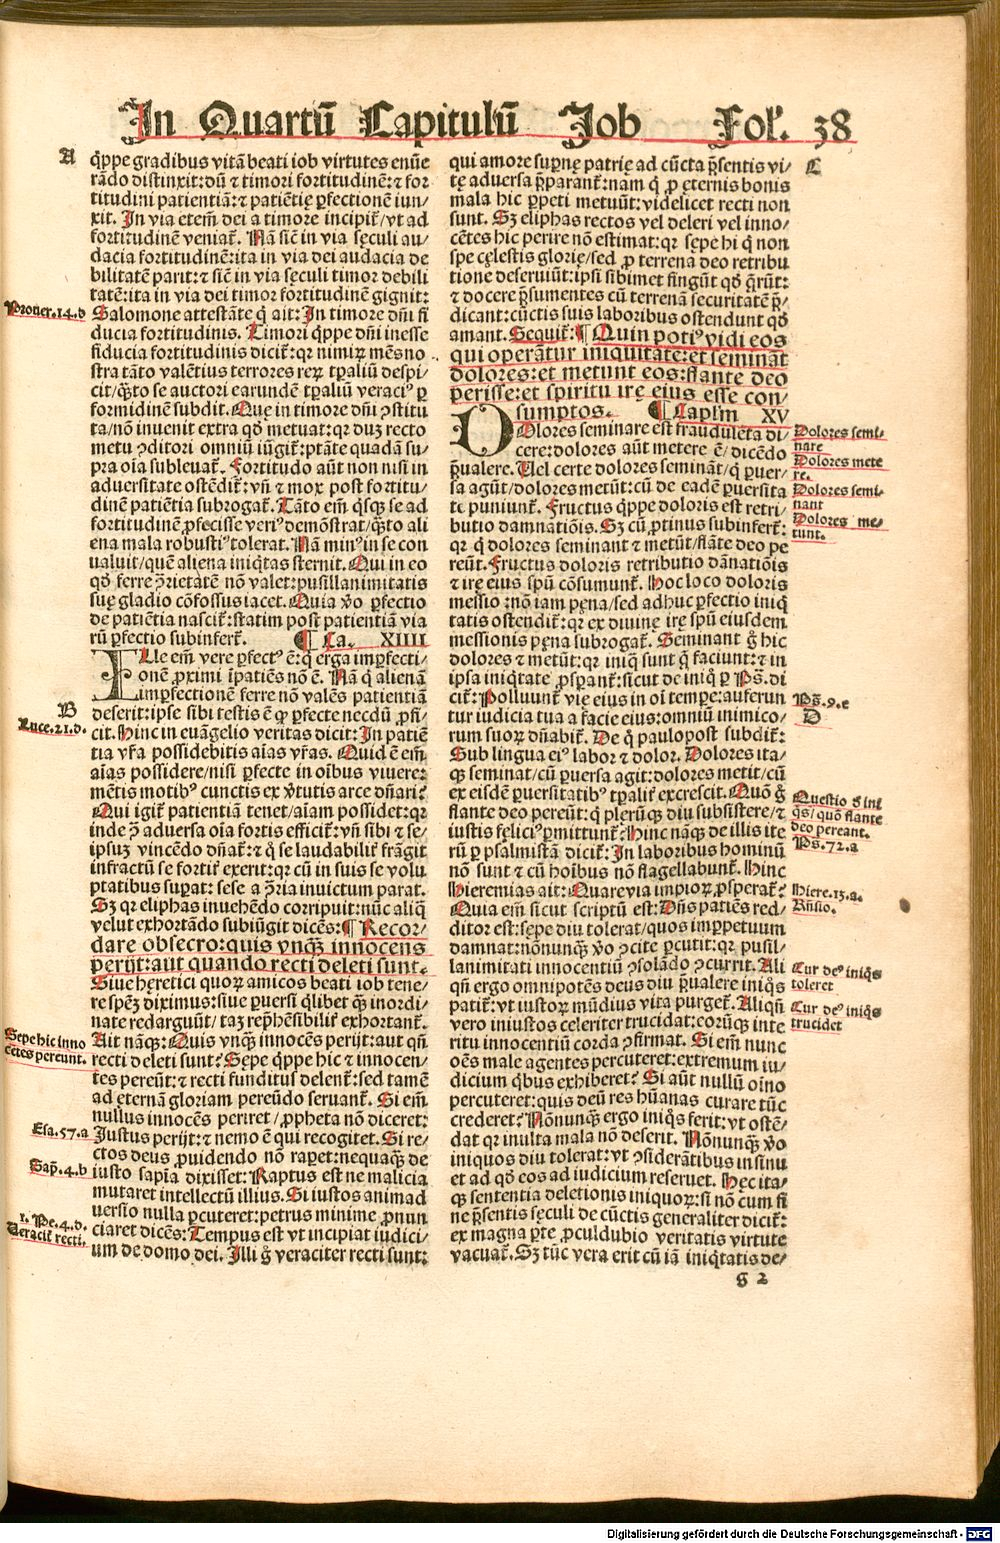 In Quartū Capitulū Job Foľ. 38
A
q̄ppe gradibus vitā beati iob virtutes enūe
rādo distinxit: dū ⁊ timori fortitudinē: ⁊ for
titudini patientiā: ⁊ patiētię ꝑfectionē iun⸗
xit. In via etem̄ dei a timore incipit̄/ vt ad
fortitudinē veniat̄. Nā sic̄ in via sęculi au⸗
dacia fortitudinē: ita in via dei audacia de
bilitatē parit: ⁊ sic̄ in via sęculi timor debili
tatē: ita in via dei timor fortitudinē gignit:
Prouer.14.d
Salomone attestāte q̄ ait: In timore dn̄i fi
ducia fortitudinis. Timori q̄ppe dn̄i inesse
fiducia fortitudinis dicit̄: qꝛ nimiꝝ mēs no
stra tāto valētius terrores reꝝ tꝑaliū despi⸗
cit/ q̄to se auctori earundē tꝑaliū veraciꝰ ꝑ
formidinem subdit. Que in timore dn̄i ꝯstitu
ta/ nō inuenit extra qd̄ metuat: qꝛ duꝫ recto
metu ꝯditori omniū iūgit̄: ptāte quadā su⸗
pra oīa subleuat̄. Fortitudo aūt non nisi in
aduersitate ostēdit̄: vn̄ ⁊ mox post fortitu⸗
dinē patiētia subrogat̄. Tāto em̄ qsq̄ se ad
fortitudinē ꝓfecisse veriꝰ demōstrat/ q̄to ali
ena mala robustiꝰ tolerat. Nā minꝰ in se con
ualuit/ quē aliena iniq̄tas sternit. Qui in eo
qd̄ ferre ꝯrietatē nō valet: pusillanimitatis
suę gladio cōfossus iacet. Quia ꝟo ꝑfectio
de patiētia nascit̄: statim post patientiā via
rū ꝑfectio subinfert̄. ¶ Ca. XIIII
Ille em̄ vere ꝑfectꝰ ē: q̄ erga imꝑfecti⸗
onē ꝓximi īpatiēs nō ē. Nā q̄ alienā
imꝑfectionē ferre nō valēs patientiā
B
deserit: ipse sibi testis ē qꝙ ꝑfecte necdū ꝓfi⸗
Luce.21.d.
cit. Hinc in euāgelio veritas dicit: In patiē
tia vr̄a possidebitis aīas vr̄as. Quid ē em̄
aīas possidere/ nisi ꝑfecte in oībus viuere:
mētis motibꝰ cunctis ex ꝟtutis arce dn̄ari?
Qui igit̄ patientiā tenet/ aīam possidet: qꝛ
inde ꝯ̄ aduersa oīa fortis efficit̄: vn̄ sibi ⁊ se⸗
ipsuꝫ vincēdo dn̄at̄: ⁊ q̄ se laudabilit̄ frāgit
infractū se fortit̄ exerit: qꝛ cū in suis se volu
ptatibus suꝑat: sese a ꝯ̄ria inuictum parat.
Sꝫ qꝛ eliphas inuehēdo corripuit: nūc aliq̄
velut exhortādo subiūgit dicēs: ¶ Recor⸗
dare obsecro: quis vnq̄ innocens
perijt: aut quando recti deleti sunt.
Siue hęretici quoꝝ amicos beati iob tene⸗
re speꝫ diximus: siue ꝑuersi qlibet q̄ inordi⸗
nate redarguūt/ taꝫ rep̄hēsibilit̄ exhortant̄.
Sępe hic inno
Ait nāqꝫ: Quis vnq̄ innocēs perijt: aut qn̄
cētes pereunt.
recti deleti sunt? Sępe q̄ppe hic ⁊ innocen⸗
tes pereūt: ⁊ recti funditus delent̄: sed tamē
ad ęternā gloriam pereūdo seruant̄. Si em̄
nullus innocēs periret/ ꝓpheta nō diceret:
Esa.57.a
Justus perijt: ⁊ nemo ē qui recogitet. Si re⸗
ctos deus ꝓuidendo nō raꝑet: nequaq̄ de
Sap̄.4.b
iusto sapīa dixisset: Raptus est ne malicia
mutaret intellectū illius. Si iustos animad
uersio nulla ꝑcuteret: petrus minime ꝓnun
1.Pe.4.d.
ciaret dicēs: Tempus est vt incipiat iudici⸗
Veracit̄ recti.
um de domo dei. Illi ḡ veraciter recti sunt:
C
qui amore suꝑnę patrię ad cūcta p̄sentis vi⸗
tę aduersa p̄parant̄: nam q̄ ꝓ ęternis bonis
mala hic ꝑpeti metuūt: videlicet recti non
sunt. Sꝫ eliphas rectos vel deleri vel inno⸗
cētes hic perire nō estimat: qꝛ sępe hi q̄ non
spe cęlestis glorię/ sed ꝓ terrena deo retribu
tione deseruiūt: ipsi sibimet fingūt qd̄ q̄rūt:
⁊ docere p̄sumentes cū terrenā securitatē p̄⸗
dicant: cūctis suis laboribus ostendunt qd̄
amant. Sequit̄: ¶ Quin potiꝰ vidi eos
qui operātur iniquitatē: et semināt
dolores: et metunt eos: flante deo
perisse: et spiritu irę eius esse con⸗
sumptos. ¶ Caplm XV
Dolores seminare est fraudulēta di⸗
Dolores semi⸗
nare
cere: dolores aūt metere ē/ dicēdo
Dolores mete
re.
p̄ualere. Vel certe dolores semināt/ q̄ ꝑuer⸗
sa agūt/ dolores metūt: cū de eadē ꝑuersita
Dolores semi⸗
nant
te puniunt̄. Fructus q̄ppe doloris est retri⸗
Dolores me⸗
tunt.
butio damnatiōis. Sꝫ cū ꝓtinus subinfert̄:
qꝛ q̄ dolores seminant ⁊ metūt/ flāte deo pe
reūt. Fructus doloris retributio dānatiōis
⁊ irę eius spū cōsumunt̄. Hoc loco doloris
messio: nō iam pęna/ sed adhuc ꝑfectio iniq̄
tatis ostendit̄: qꝛ ex diuine irę spū eiusdem
messionis pęna subrogat̄. Seminant ḡ hic
dolores ⁊ metūt: qꝛ iniq̄ sunt q̄ faciunt: ⁊ in
ipsa iniqtate ꝓsꝑant̄: sicut de iniq̄ ꝑ Ps̄. di
Ps̄.9.e
cit̄: Polluunt̄ vię eius in oī tempe: auferun
D
tur iudicia tua a facie eius: omniū inimico⸗
rum suoꝝ dn̄abit̄. De q̄ paulopost subdit̄:
Sub lingua eiꝰ labor ⁊ dolor. Dolores ita⸗
qꝫ seminat/ cū ꝑuersa agit: dolores metit/ cū
ex eisdē ꝑuersitatibꝰ tꝑalit̄ excrescit. Quō ḡ
Questio ꝺ ini
q̄s/ quō flante
flante deo pereūt: q̄ plerūqꝫ diu subsistere/ ⁊
deo pereant.
iustis fęliciꝰ ꝑmittunt̄? Hinc nāqꝫ de illis ite
Ps.72.a
rū ꝑ psalmistā dicit̄: In laboribus hominū
nō sunt ⁊ cū hoībus nō flagellabunt̄. Hinc
Hiere.13.a.
Hieremias ait: Quare via impioꝝ ꝓsꝑat̄?
Rn̄sio.
Quia em̄ sicut scriptū est: Dn̄s patiēs red⸗
ditor est: sępe diu tolerat/ quos imꝑpetuum
damnat: nōnunq̄ ꝟo ꝯcite ꝑcutit: qꝛ pusil⸗
lanimitati innocentiū ꝯsolādo ꝯcurrit. Ali
Cur deꝰ iniq̄s
toleret
qn̄ ergo omnipotēs deus diu p̄ualere iniq̄s
patit̄: vt iustoꝝ mūdius vita purget̄. Aliqn̄
Cur deꝰ iniq̄s
trucidet
vero iniustos celeriter trucidat: eorūqꝫ inte
ritu innocentiū corda ꝯfirmat. Si em̄ nunc
oēs male agentes ꝑcuteret: extremum iu⸗
dicium q̄bus exhiberet? Si aūt nullū oīno
percuteret: quis deū res hūanas curare tūc
crederet? Nōnunq̄ ergo iniq̄s ferit: vt ostē⸗
dat qꝛ inulta mala nō deserit. Nōnunq̄ ꝟo
iniquos diu tolerat: vt ꝯsiderātibus insinu
et ad qd̄ eos ad iudicium reseruet. Hęc ita⸗
qꝫ sententia deletionis iniquoꝝ: si nō cum fi
ne p̄sentis sęculi de cūctis generaliter dicit̄:
ex magna ꝑte ꝓculdubio veritatis virtute
vacuat̄. Sꝫ tūc vera erit cū iā iniq̄tatis de⸗
g 2
Digitalisierung gefördert durch die Deutsche Forschungsgemeinschaft - DFG